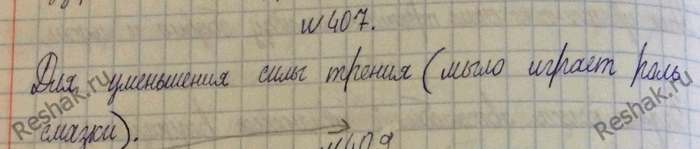 №407.
Для уменьшения силы трения (мыло играет роль
смазки).
№409
Reshak.ru
Reshak.ru